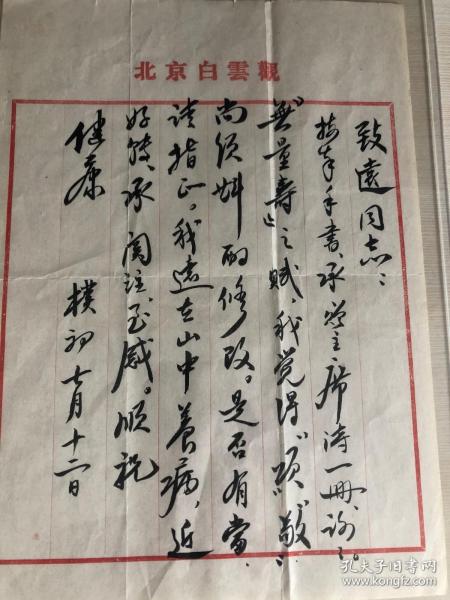 北京白雲觀
致遠同志：
接奉手書、承贈主席诗一冊、谢谢。
"無量壽"之赋、我觉得"颂""敬"
尚须斟酌修改。是否有當、
请指正。我遠在山中養病，近
好转、承関注、至感。順祝
健康
樸初 七月十二日
孔夫子旧书网
kongfz.com